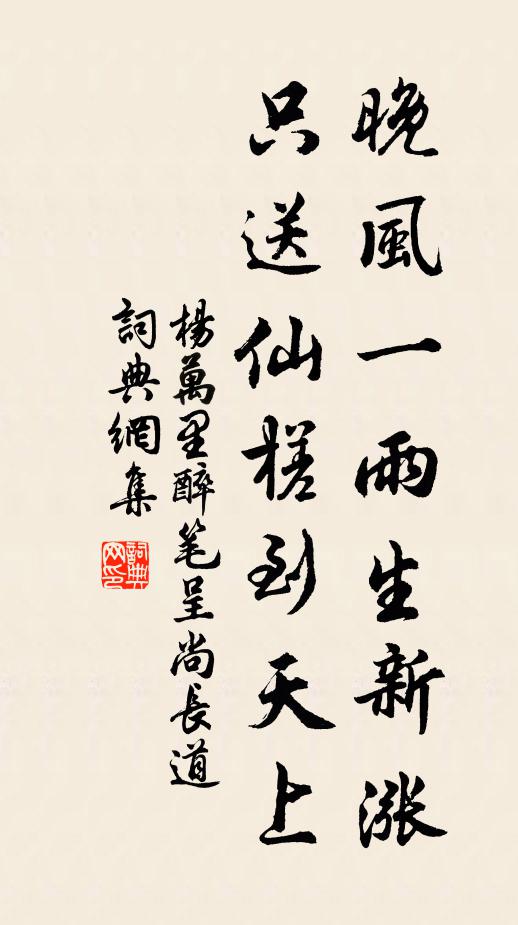 晚風一雨生新漲
只送仙槎到天上
楊萬里醉笔呈尚長道
詞典網集
詞典
网印